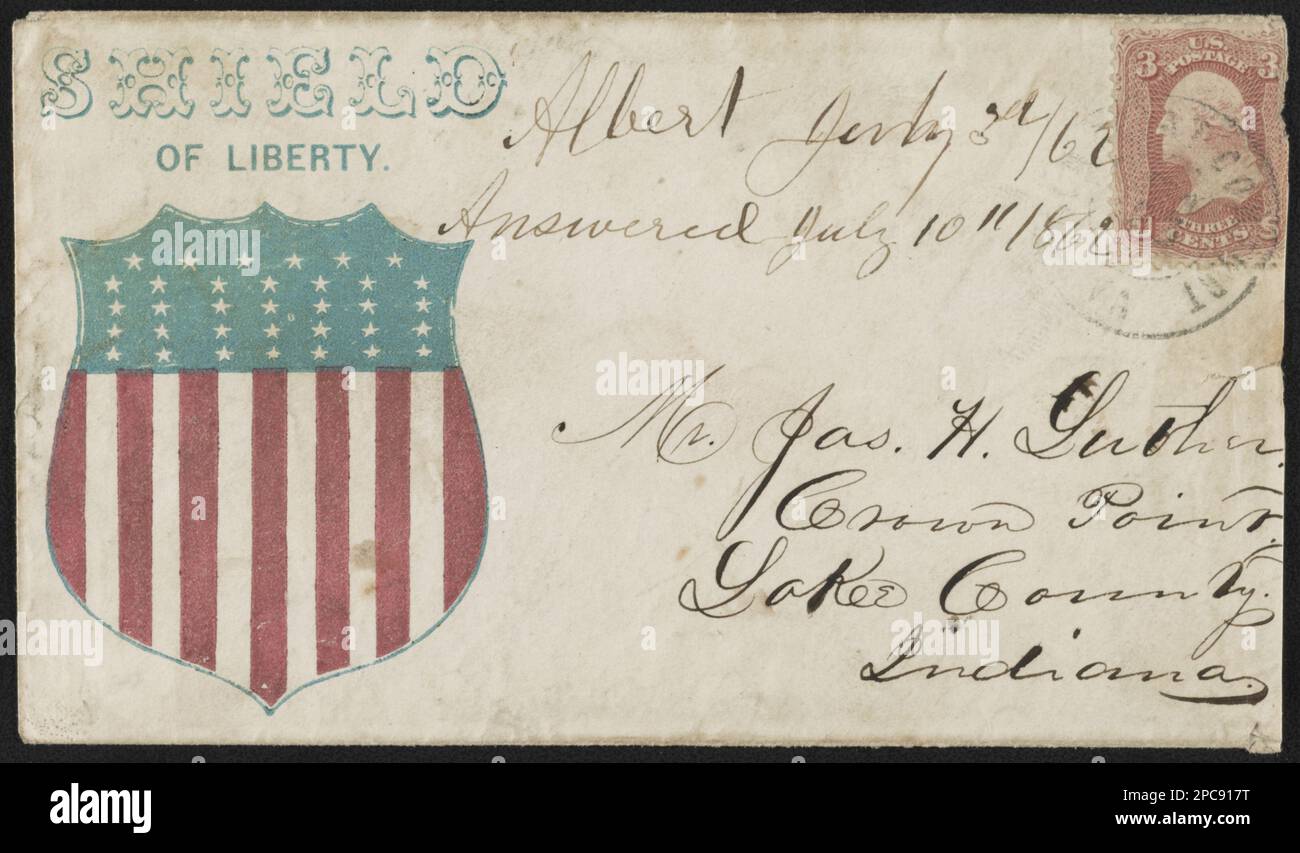 SHIELD
OF LIBERTY.
Albert July 3rd/62
Answered July 10" 1862
U.S.
POSTAGE
3 3
THREE
CENTS
Mr. Jas. H. Luther.
Crown Point,
Lake County.
Indiana.
alamy
Image ID: 2PC917T
www.alamy.com